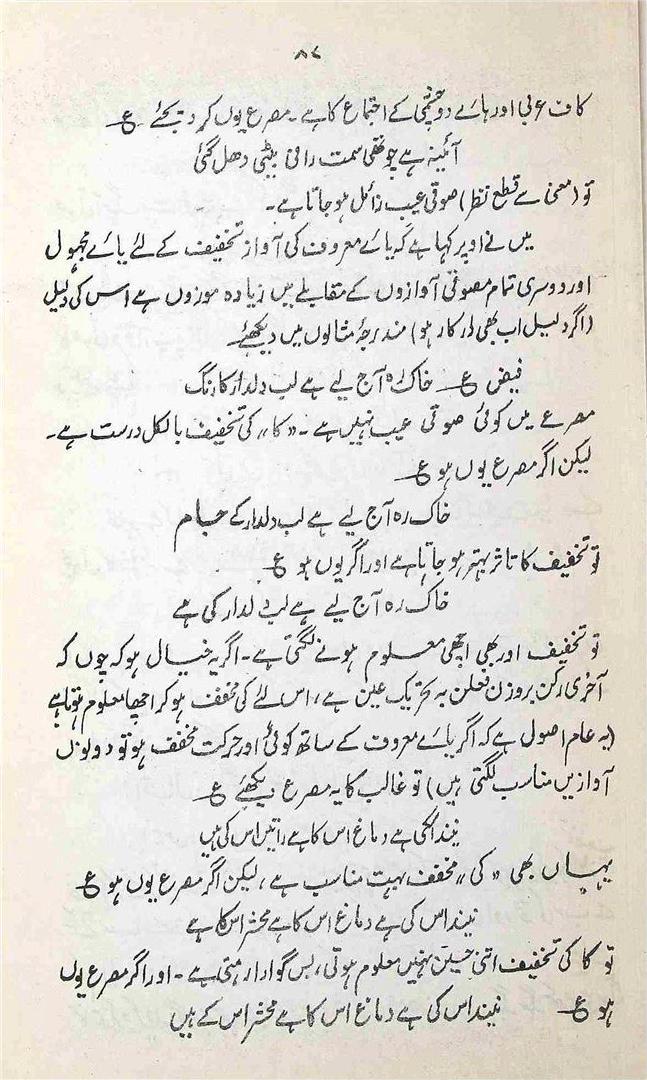 ۸۷
کاف عربی اور ہائے دوچشمی کے اجتماع کا ہے۔ مصرع یوں کر دیجئے ع
آئینہ ہے چوتھی سمت رانی بیٹی دھل گئی
تو (معنی سے قطع نظر) صوتی عیب زائل ہو جاتا ہے۔
میں نے اوپر کہا ہے کہ یائے معروف کی آواز تخفیف کے لئے یائے مجہول
اور دوسری تمام مصوتی آوازوں کے مقابلے میں زیادہ موزوں ہے اس کی دلیل
(اگر دلیل اب بھی درکار ہو) مندرجۂ مثالوں میں دیکھئے
فیض ع خاک رہ آج لیے ہے لب دلدار کا رنگ
مصرعے میں کوئی صوتی عیب نہیں ہے۔ "کا" کی تخفیف بالکل درست ہے۔
لیکن اگر مصرع یوں ہو ع
خاک رہ آج لیے ہے لب دلدار کے جام
تو تخفیف کا تاثر بہتر ہو جاتا ہے اور اگر یوں ہو ع
خاک رہ آج لیے ہے لب دلدار کی مے
تو تخفیف اور بھی اچھی معلوم ہونے لگتی ہے۔ اگر یہ خیال ہو کہ چوں کہ
آخری رکن بروزن فعلن بہ تحریک عین ہے، اس لئے کی مخفف ہو کر اچھا معلوم ہوتا ہے
(یہ عام اصول ہے کہ اگر یائے معروف کے ساتھ کوئی اور حرکت مخفف ہو تو دونوں
آوازیں مناسب لگتی ہیں) تو غالب کا یہ مصرع دیکھئے ع
نیند اسکی ہے دماغ اس کا ہے راتیں اس کی ہیں
یہاں بھی "کی" مخفف بہت مناسب ہے، لیکن اگر مصرع یوں ہو ع
نیند اس کی ہے دماغ اس کا ہے محشر اس کا ہے
تو کا کی تخفیف اتنی حسین نہیں معلوم ہوتی، بس گوارا رہتی ہے۔ اور اگر مصرع یوں
ہو ع نیند اس کی ہے دماغ اس کا ہے محشر اس کے ہیں